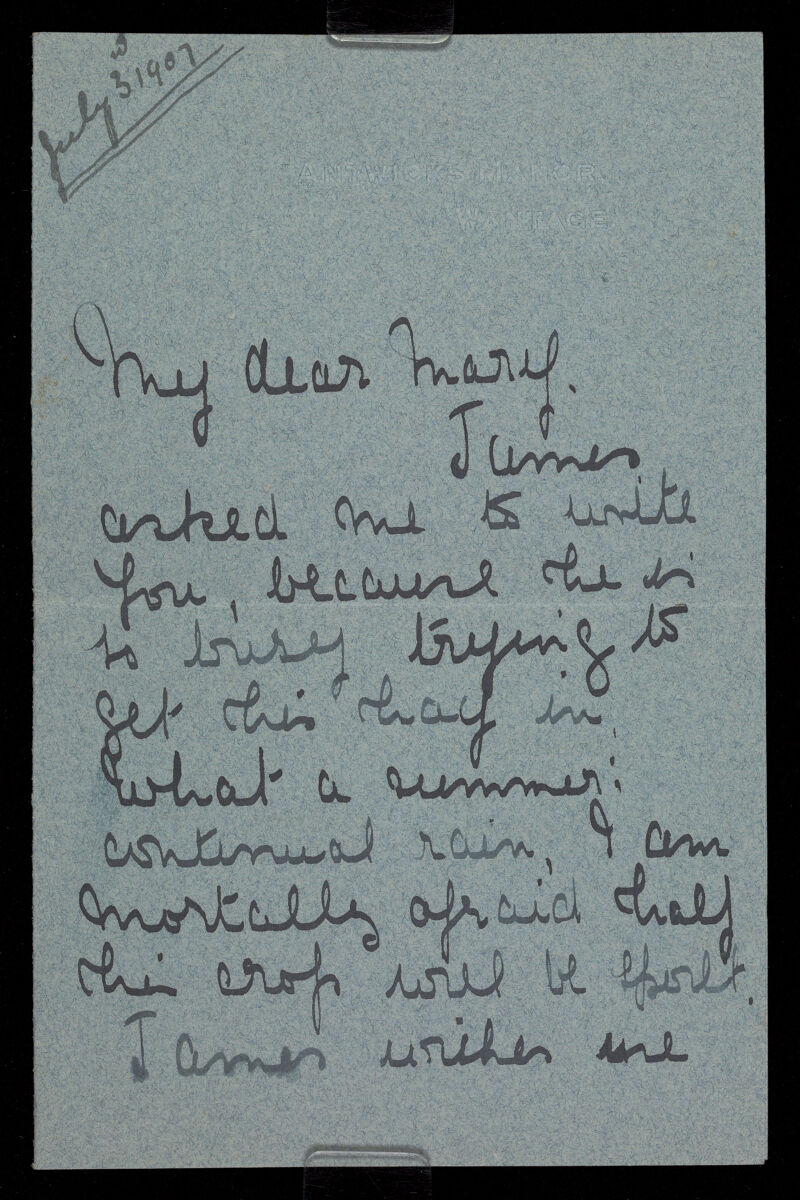 July 3rd 1907
ANTWICKS MANOR
WANTAGE
My dear Mary.
James
asked me to write
You, because he is
so busy trying to
get his hay in,
What a summer:
continual rain, I am
mortally afraid half
his crop will be spoilt.
James wishes me